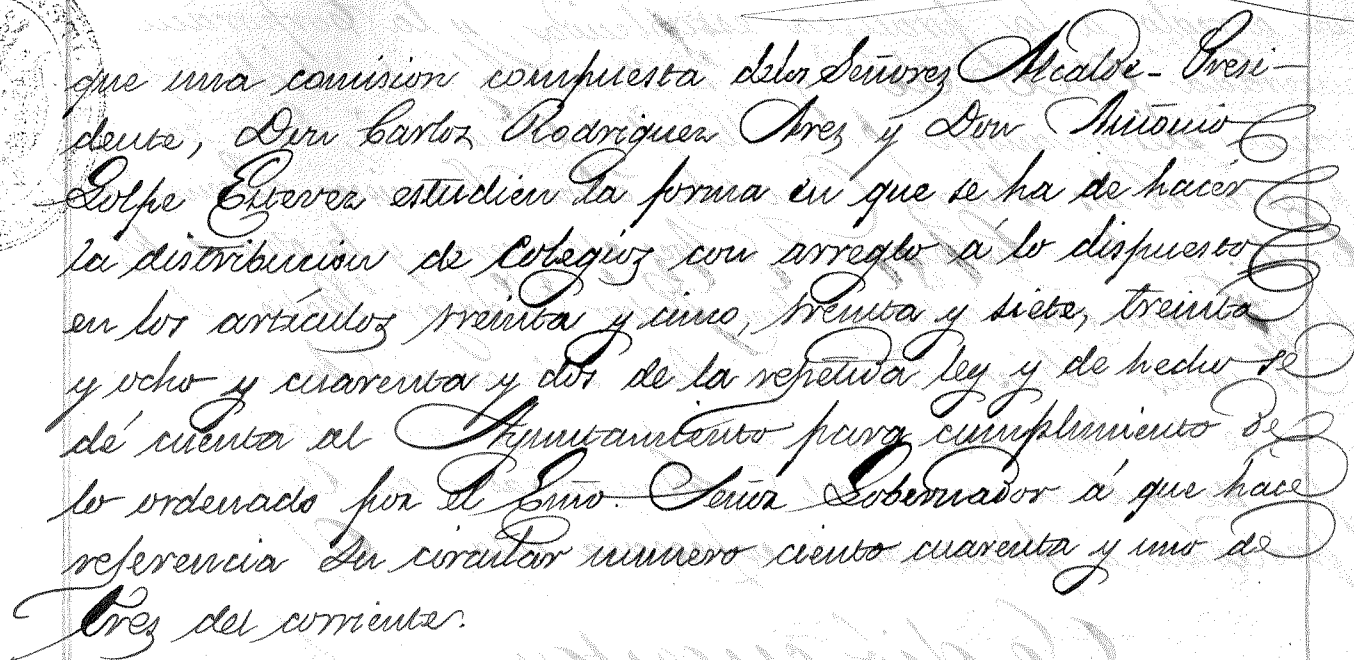 que una comision compuesta delos Señores Alcalde-Presi-
dente, Don Carlos Rodriguez Ares y Don Antonio
Golpe Estevez estudien la forma en que se ha de hacér
la distribución de colegios con arreglo á lo dispuesto
en los artículos treinta y cinco, treinta y siete, treinta
y ocho y cuarenta y dos de la repetida ley y de hecho se
dé cuenta al Ayuntamiento para cumplimiento de
lo ordenado por el Emo. Señor Gobernador á que hace
referencia su circular numero ciento cuarenta y uno de
tres del corriente.